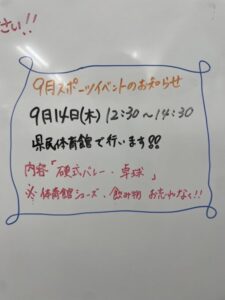 さい!!
9月スポーツイベントのお知らせ
9月14日(木) 12:30〜14:30
県民体育館で行います!!
内容「硬式バレー・卓球」
※体育館シューズ、飲み物 お忘れなく!!